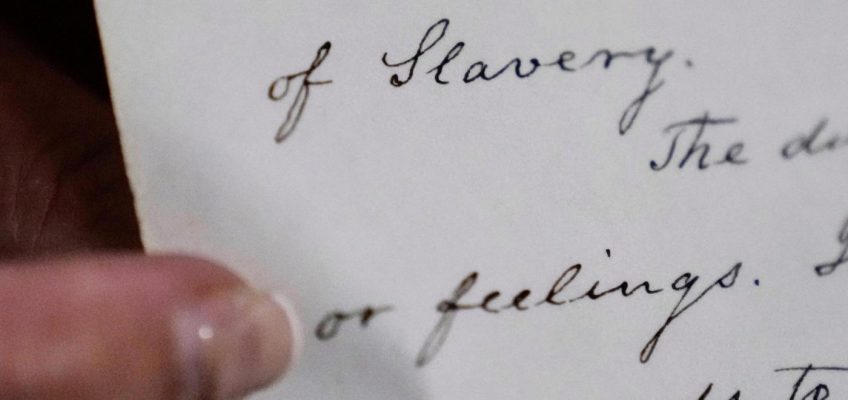 of Slavery.
The
or feelings.
to